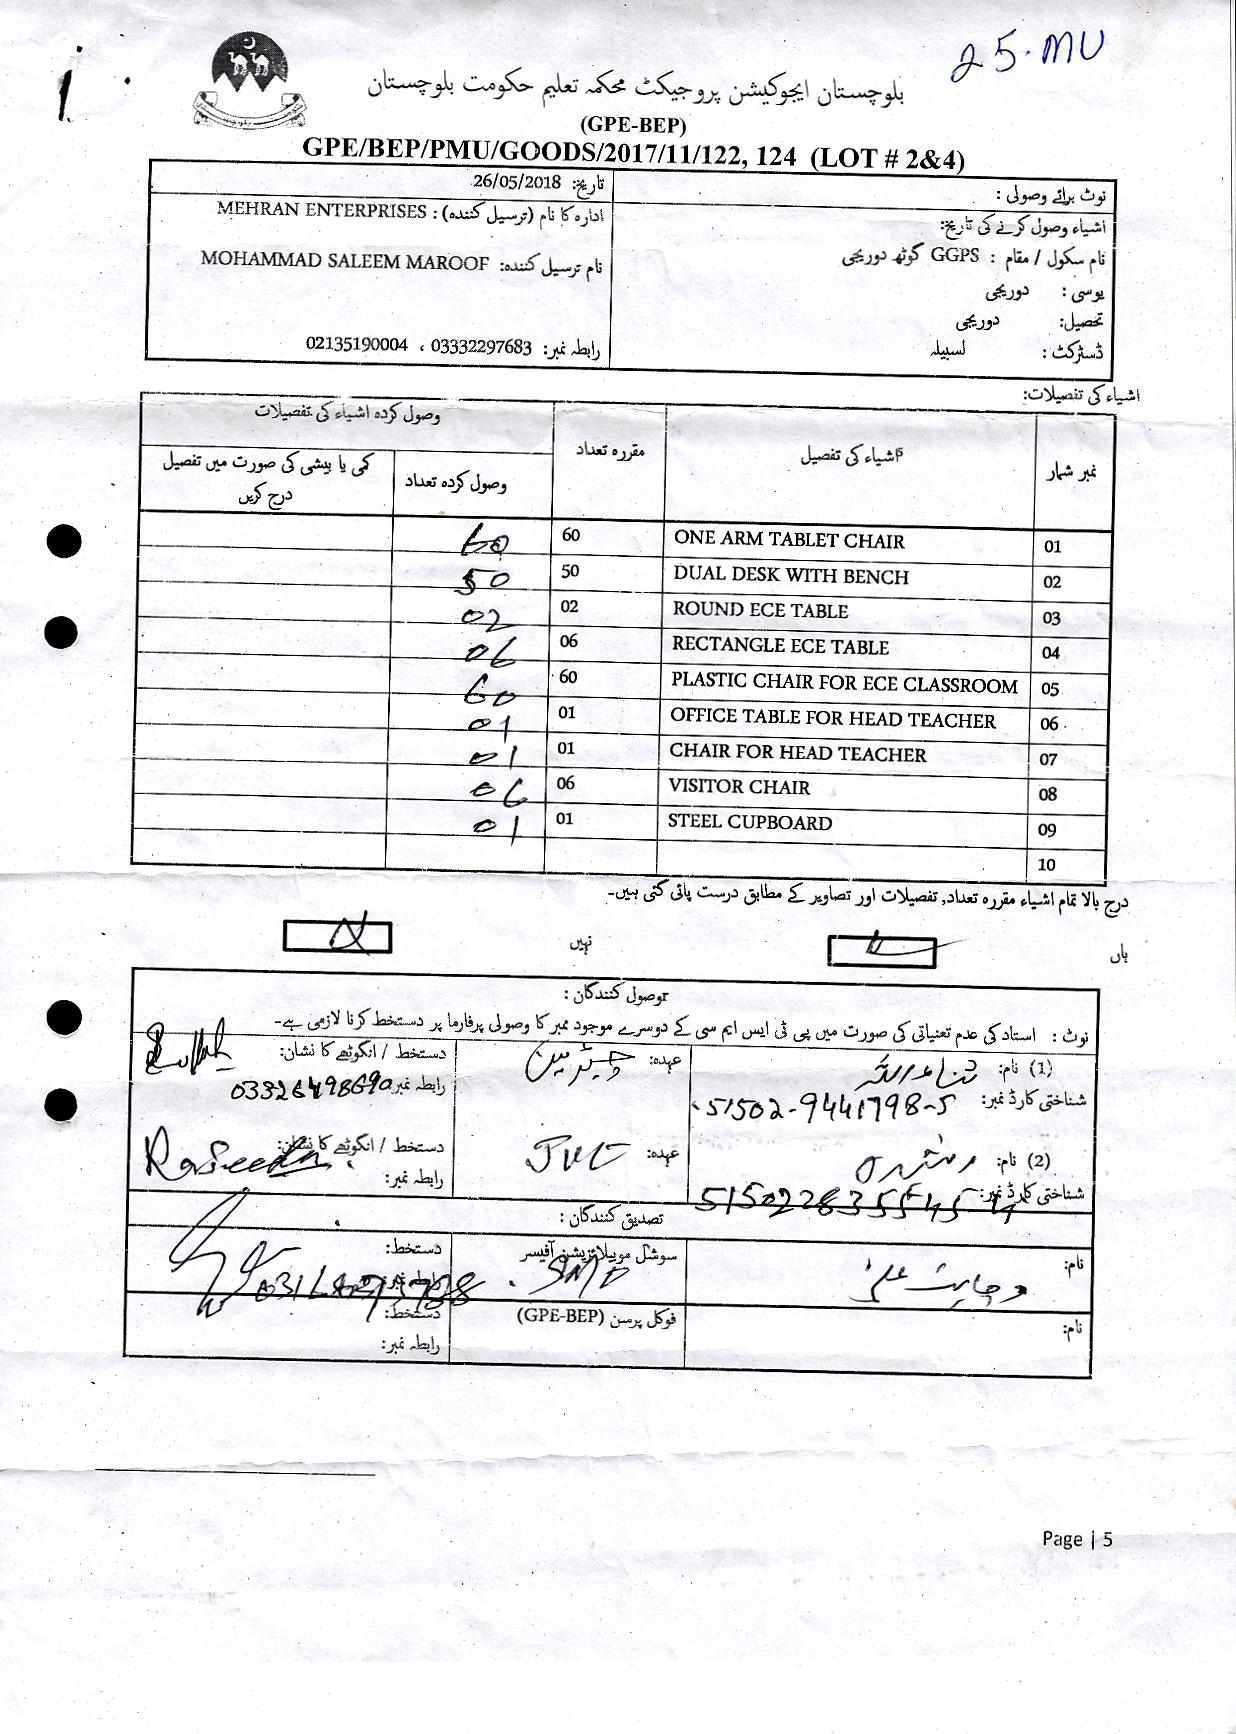 25.MU
1
بلوچستان ایجوکیشن پروجیکٹ محکمہ تعلیم حکومت بلوچستان
(GPE-BEP)
GPE/BEP/PMU/GOODS/2017/11/122, 124 (LOT # 2&4)
نوٹ برائے وصولی :
تاریخ: 26/05/2018
اشیاء وصول کرنے کی تاریخ:
ادارہ کا نام (ترسیل کنندہ) : MEHRAN ENTERPRISES
نام سکول / مقام : GGPS گوٹھ دوریجی
نام ترسیل کنندہ: MOHAMMAD SALEEM MAROOF
یوسی : دوریجی
تحصیل: دوریجی
ڈسٹرکٹ : لسبیلہ
رابطہ نمبر: 03332297683 ، 02135190004
اشیاء کی تفصیلات:
نمبر شمار اشیاء کی تفصیل مقررہ تعداد وصول کردہ اشیاء کی تفصیلات
وصول کردہ تعداد کمی یا بیشی کی صورت میں تفصیل درج کریں
01 ONE ARM TABLET CHAIR 60 60
02 DUAL DESK WITH BENCH 50 50
03 ROUND ECE TABLE 02 02
04 RECTANGLE ECE TABLE 06 06
05 PLASTIC CHAIR FOR ECE CLASSROOM 60 60
06 OFFICE TABLE FOR HEAD TEACHER 01 01
07 CHAIR FOR HEAD TEACHER 01 01
08 VISITOR CHAIR 06 06
09 STEEL CUPBOARD 01 01
10
درج بالا تمام اشیاء مقررہ تعداد, تفصیلات اور تصاویر کے مطابق درست پائی گئی ہیں۔
ہاں نہیں
وصول کنندگان :
نوٹ : استاد کی عدم تعیناتی کی صورت میں پی ٹی ایس ایم سی کے دوسرے موجود ممبر کا وصولی پرفارما پر دستخط کرنا لازمی ہے۔
(1) نام: ثناءاللہ عہدہ: چیئرمین دستخط / انگوٹھے کا نشان:
شناختی کارڈ نمبر: 51502-9441798-5 رابطہ نمبر: 03326498690
(2) نام: عہدہ: JVT دستخط / انگوٹھے کا نشان: Raseeda
شناختی کارڈ نمبر: رابطہ نمبر:
تصدیق کنندگان :
نام: سوشل موبیلائزیشن آفیسر SMO دستخط:
رابطہ نمبر:
نام: فوکل پرسن (GPE-BEP) دستخط:
رابطہ نمبر:
Page | 5